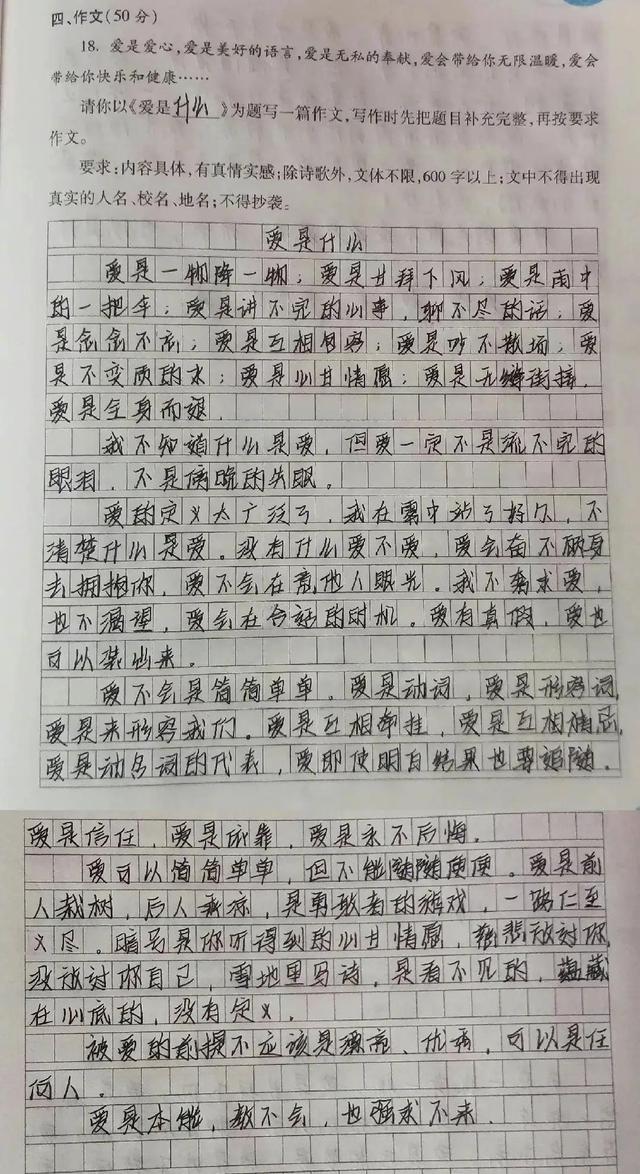 四、作文(50分)
18. 爱是爱心,爱是美好的语言,爱是无私的奉献,爱会带给你无限温暖,爱会
带给你快乐和健康……
请你以《爱是什么》为题写一篇作文,写作时先把题目补充完整,再按要求
作文。
要求:内容具体,有真情实感;除诗歌外,文体不限,600字以上;文中不得出现
真实的人名、校名、地名;不得抄袭。
爱是什么
爱是一物降一物;爱是甘拜下风;爱是雨中
的一把伞;爱是讲不完的心事,聊不尽的话;爱
是念念不忘;爱是互相包容;爱是吵不散场;爱
是不变质的水;爱是心甘情愿;爱是无缝衔接,
爱是全身而退.
我不知道什么是爱,但爱一定不是流不完的
眼泪,不是傍晚的失眠。
爱的定义太广泛了,我在雾中站了好久,不
清楚什么是爱。没有什么爱不爱,爱会奋不顾身
去拥抱你,爱不会在意他人眼光。我不奢求爱,
也不渴望,爱会在合适的时机。爱有真假,爱也
可以装出来。
爱不会是简简单单,爱是动词,爱是形容词,
爱是来形容我们。爱是互相牵挂,爱是互相惦记,
爱是动名词的代表,爱即使明白结果也要追随。
爱是信任,爱是依靠,爱是永不后悔.
爱可以简简单单,但不能随随便便。爱是前
人栽树,后人乘凉,是勇敢者的游戏,一路仁至
义尽。暗号是你听得到的心甘情愿,慈悲敌对你,
没敌对你自己,雪地里写诗,是看不见的,蕴藏
在心底的,没有定义.
被爱的前提不应该是漂亮、优秀,可以是任
何人。
爱是本能,教不会,也强求不来.